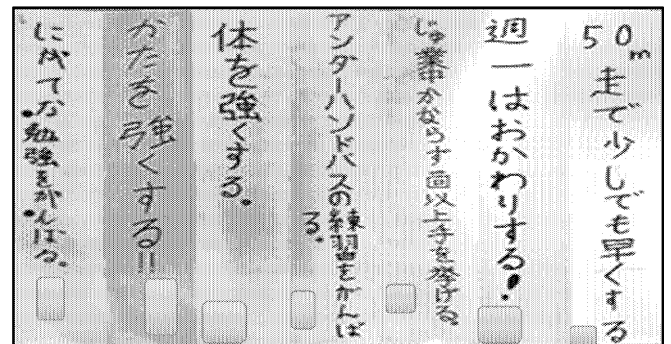 50m走で少しでも早くする
週一はおかわりする!
じゅ業中かならず 回以上手を挙げる。
アンダーハンドパスの練習をがんばる。
体を強くする。
かたを強くする!!
にがてな勉強をがんばる。